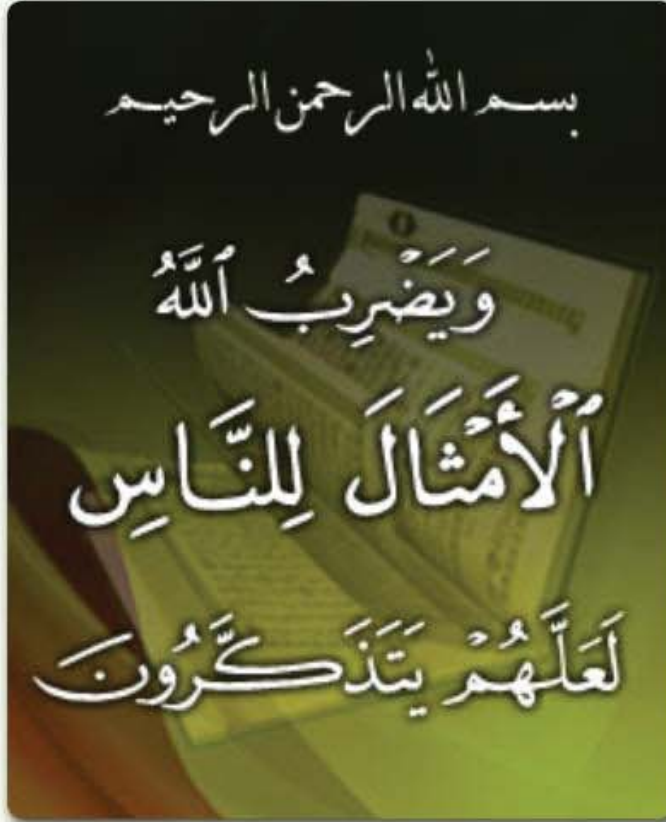 بسم الله الرحمن الرحيم
وَيَضْرِبُ ٱللَّهُ
ٱلْأَمْثَالَ لِلنَّاسِ
لَعَلَّهُمْ يَتَذَكَّرُونَ